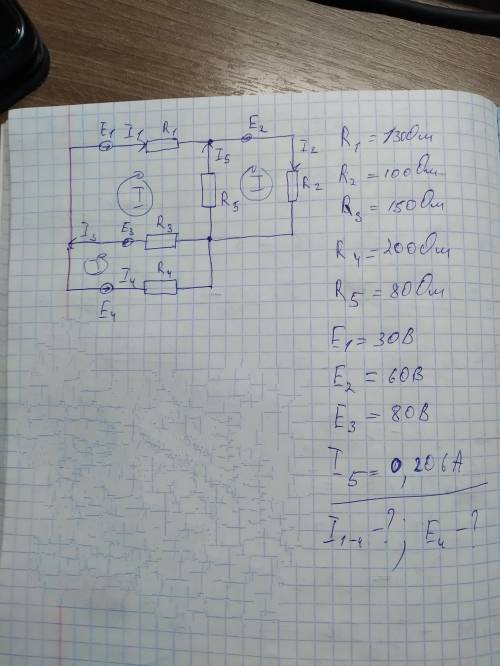 E1 I1 R1
E2
I5
I2
I
I
R5
R2
I3
E3
R3
I4
R4
E4
R1 = 130 Ом
R2 = 100 Ом
R3 = 150 Ом
R4 = 200 Ом
R5 = 80 Ом
E1 = 30В
E2 = 60В
E3 = 80В
I5 = 0,206А
I1-4 - ? ; E4 - ?